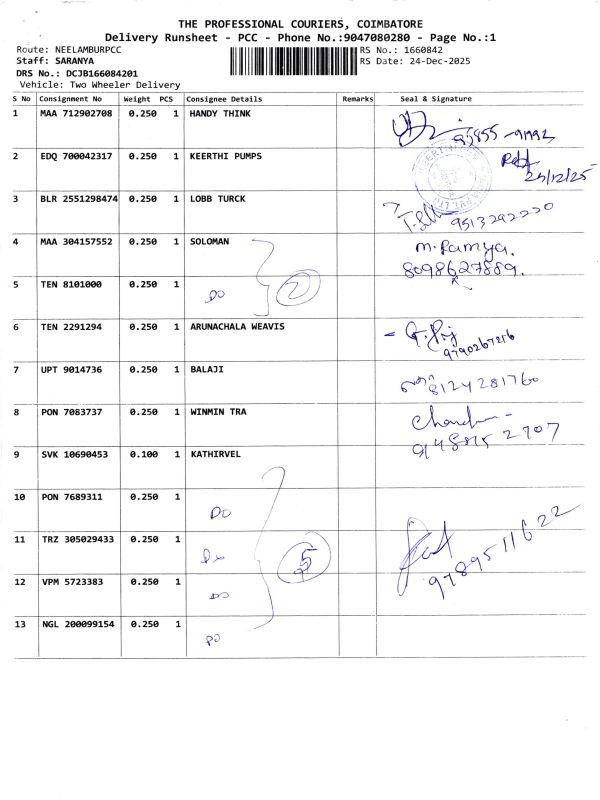 THE PROFESSIONAL COURIERS, COIMBATORE
Delivery Runsheet - PCC - Phone No.:9047080280 - Page No.:1
Route: NEELAMBURPCC
RS No.: 1660842
Staff: SARANYA
RS Date: 24-Dec-2025
DRS No.: DCJB166084201
Vehicle: Two Wheeler Delivery
S No Consignment No Weight PCS Consignee Details Remarks Seal & Signature
1 MAA 712902708 0.250 1 HANDY THINK
2 EDQ 700042317 0.250 1 KEERTHI PUMPS
25/12/25
3 BLR 2551298474 0.250 1 LOBB TURCK
9513292220
4 MAA 304157552 0.250 1 SOLOMAN M. Ramya.
8098627889.
5 TEN 8101000 0.250 1 DO 2
6 TEN 2291294 0.250 1 ARUNACHALA WEAVIS
9790267216
7 UPT 9014736 0.250 1 BALAJI 8124281760
8 PON 7083737 0.250 1 WINMIN TRA
9 SVK 10690453 0.100 1 KATHIRVEL
10 PON 7689311 0.250 1 DO
11 TRZ 305029433 0.250 1 Do 5 9789511622
12 VPM 5723383 0.250 1 DO
13 NGL 200099154 0.250 1 DO